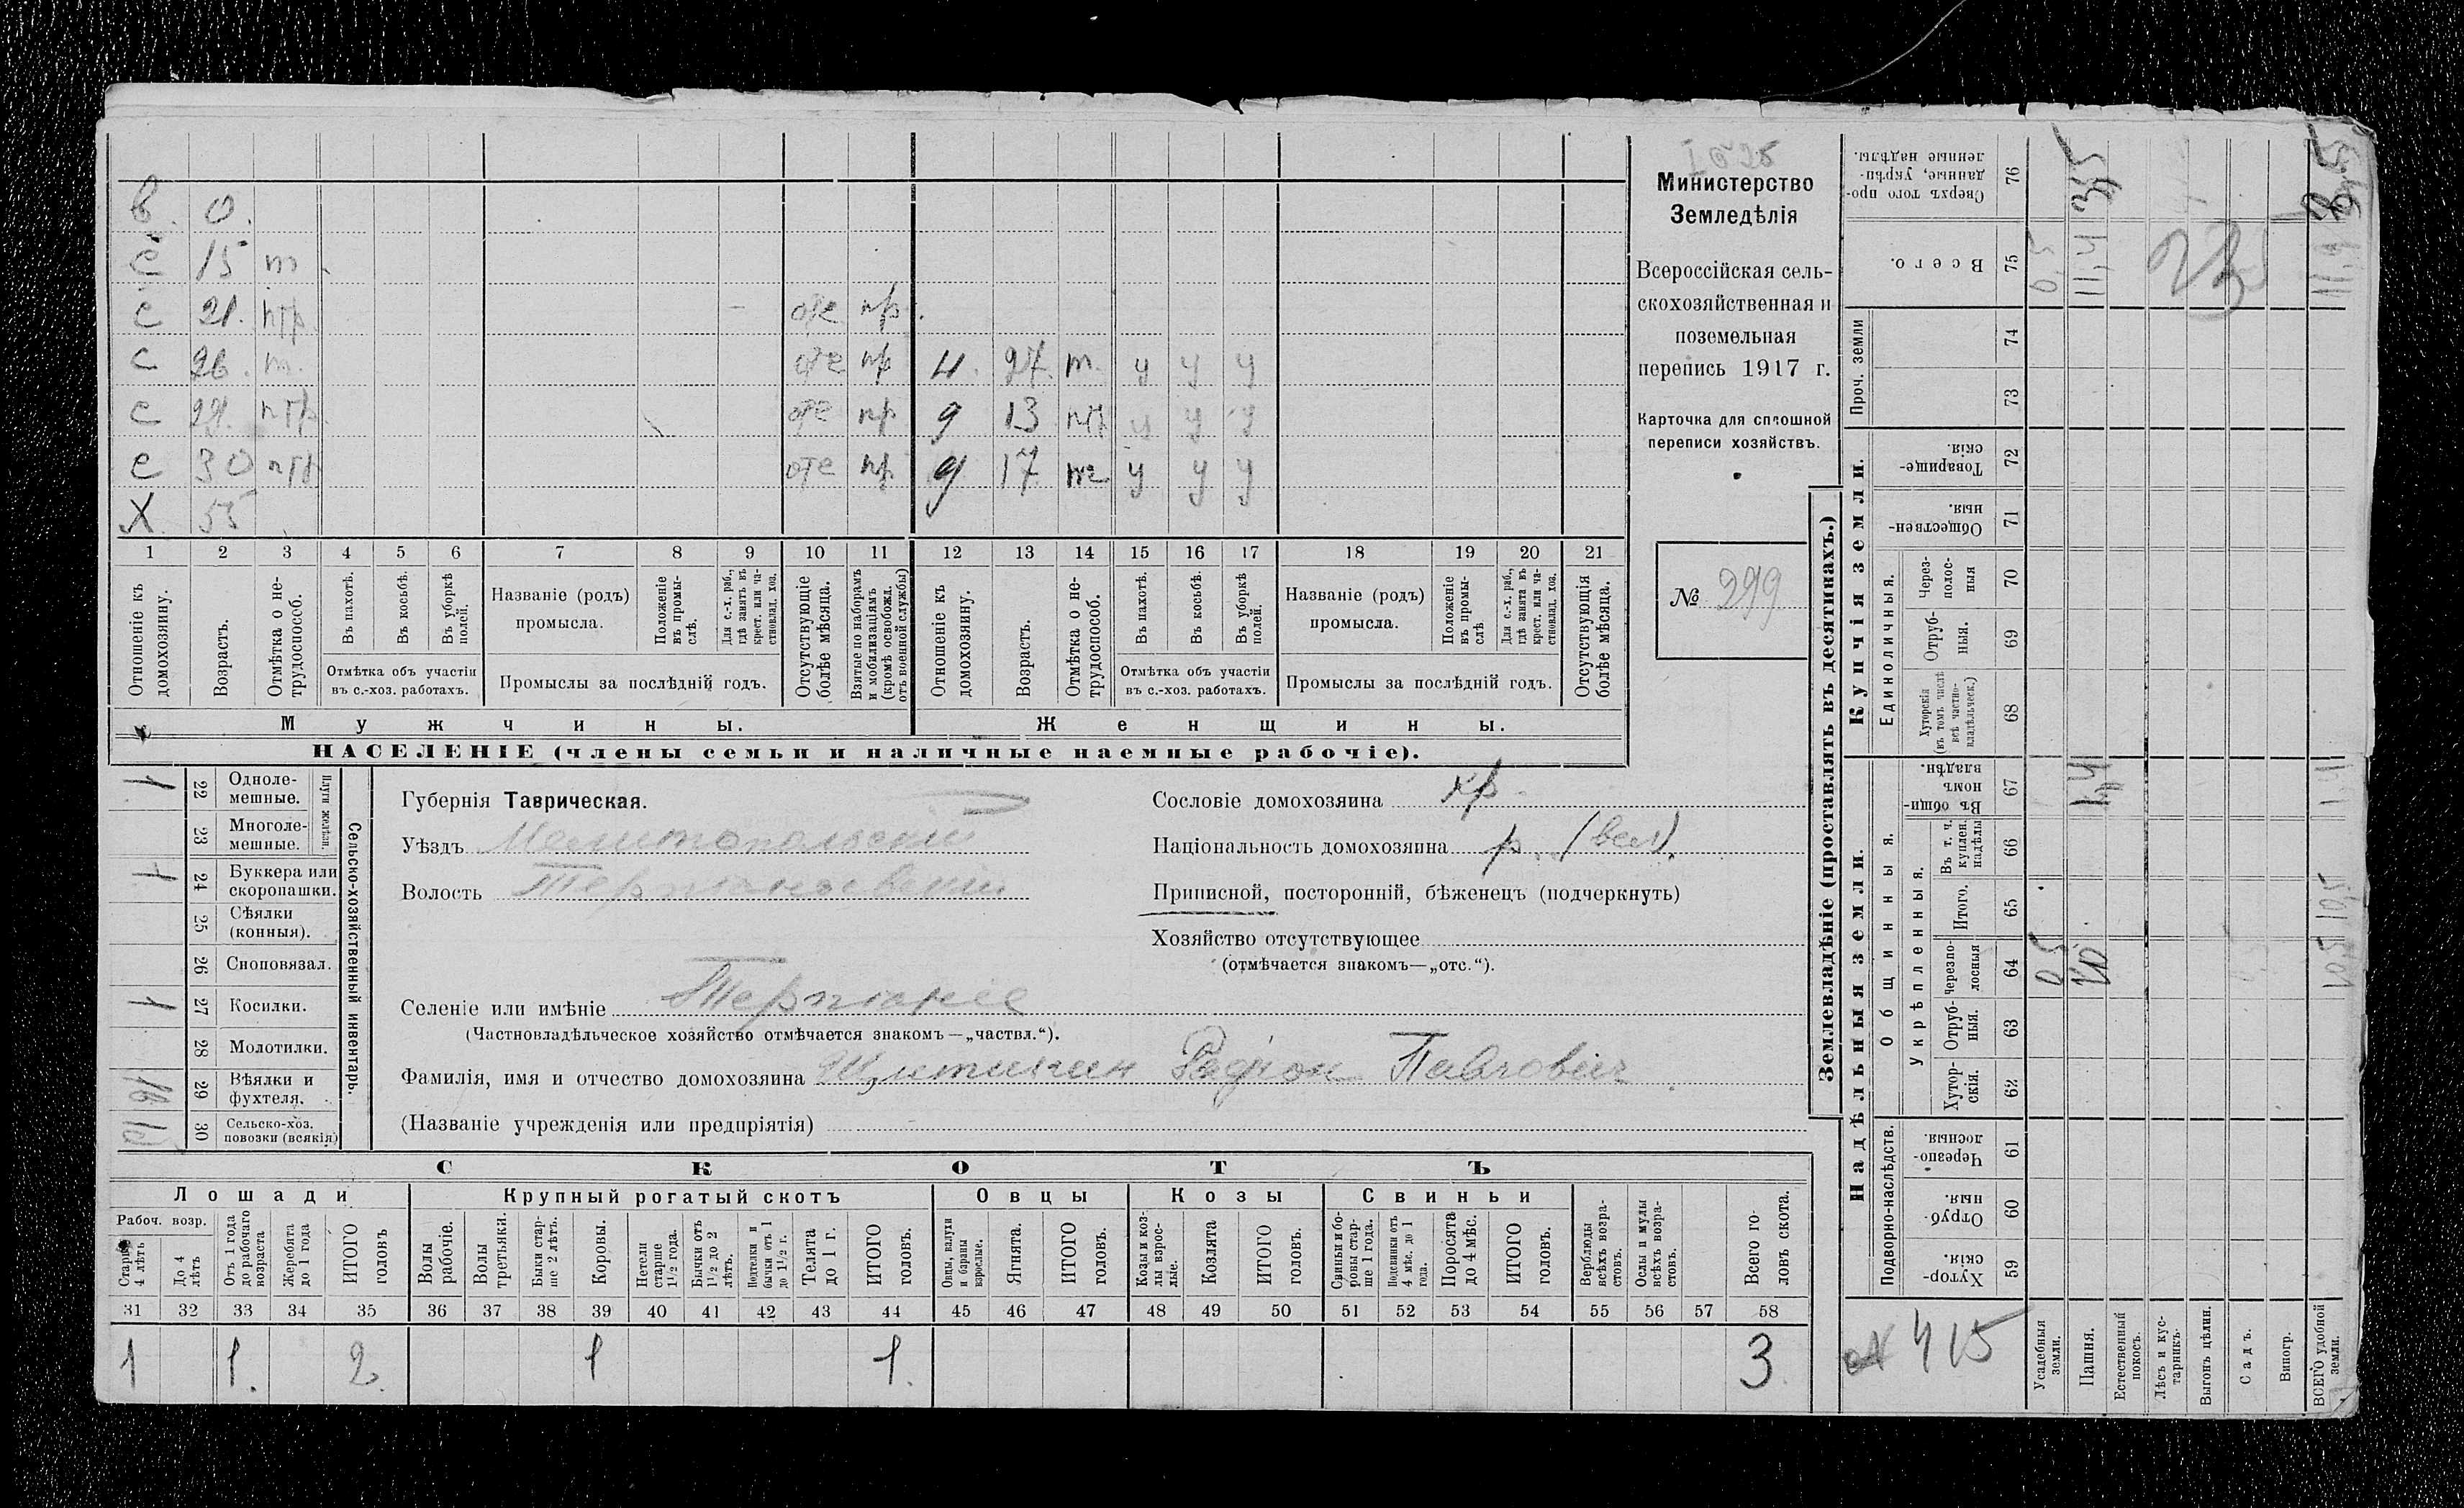 в. 0.
с 15 т
с 21. птр. отс пр.
с 26. т. отс пр н. 27. т. у у у
с 29. птр. отс пр д 13 птр у у у
с 30 птр отс пр д 17 т у у у
Х 55
1 2 3 4 5 6 7 8 9 10 11 12 13 14 15 16 17 18 19 20 21
Отношеніе къ домохозяину.
Возрастъ.
Отмѣтка о нетрудоспособ.
Въ пахотѣ.
Въ косьбѣ.
Въ уборкѣ полей.
Отмѣтка объ участіи
въ с.-хоз. работахъ.
Названіе (родъ)
промысла.
Положеніе въ промыслѣ.
Для с.-х. раб., гдѣ занятъ въ крест. или частновлад. хоз.
Промыслы за послѣдній годъ.
Отсутствующіе болѣе мѣсяца.
Взятые по наборамъ и мобилизаціямъ (кромѣ освобожд. отъ военной службы)
Отношеніе къ домохозяину.
Возрастъ.
Отмѣтка о нетрудоспособ.
Въ пахотѣ.
Въ косьбѣ.
Въ уборкѣ полей.
Отмѣтка объ участіи
въ с.-хоз. работахъ.
Названіе (родъ)
промысла.
Положеніе въ промыслѣ
Для с.-х. раб., гдѣ занята въ крест. или частновлад. хоз.
Промыслы за послѣдній годъ.
Отсутствующія болѣе мѣсяца.
Мужчины.
Женщины.
НАСЕЛЕНІЕ (члены семьи и наличные наемные рабочіе).
Министерство
Земледѣлія
Всероссійская сель-
скохозяйственная и
поземельная
перепись 1917 г.
Карточка для сплошной
переписи хозяйствъ.
№ 299
Сельско-хозяйственный инвентарь.
Плуги желѣзн.
22 Одноле-
мешные. 1
23 Многоле-
мешные.
24 Буккера или
скоропашки. 1
25 Сѣялки
(конныя).
26 Сноповязал.
27 Косилки. 1
28 Молотилки.
29 Вѣялки и
фухтеля.
30 Сельско-хоз.
повозки (всякія)
Губернія Таврическая.
Уѣздъ Мелитопольскій
Волость Терпѣньевскій
Сословіе домохозяина кр.
Національность домохозяина р. (вел).
Приписной, посторонній, бѣженецъ (подчеркнуть)
Хозяйство отсутствующее
(отмѣчается знакомъ—„отс.“).
Селеніе или имѣніе Терпѣніе
(Частновладѣльческое хозяйство отмѣчается знакомъ—„частвл.“).
Фамилія, имя и отчество домохозяина Родіон Павловіч
(Названіе учрежденія или предпріятія)
СКОТЪ
Лошади
Крупный рогатый скотъ
Овцы
Козы
Свиньи
Рабоч. возр.
Старше 4 лѣтъ
До 4 лѣтъ
Отъ 1 года до рабочаго возраста
Жеребята до 1 года
ИТОГО головъ
Волы рабочіе.
Волы третьяки.
Быки старше 2 лѣтъ.
Коровы.
Нетели старше 1½ года.
Бычки отъ 1½ до 2 лѣтъ.
Подтелки и бычки отъ 1 до 1½ г.
Телята до 1 г.
ИТОГО головъ.
Овцы, валухи и бараны взрослые.
Ягнята.
ИТОГО головъ.
Козы и козлы взрослые.
Козлята
ИТОГО головъ.
Свиньи и боровы старше 1 года.
Подсвинки отъ 4 мѣс. до 1 года.
Поросята до 4 мѣс.
ИТОГО головъ.
Верблюды всѣхъ возрастовъ.
Ослы и мулы всѣхъ возрастовъ.
Всего головъ скота.
31 32 33 34 35 36 37 38 39 40 41 42 43 44 45 46 47 48 49 50 51 52 53 54 55 56 57 58
1 1. 2. 1 1. 3
Землевладѣніе (проставлять въ десятинахъ.)
Надѣльныя земли.
Купчія земли.
Проч. земли
Подворно-наслѣдств.
Общинныя.
Укрѣпленныя.
Единоличныя.
Сверхъ того проданные, укрѣпленные надѣлы. 76 3,5
Всего. 75 0,5 11,4 11,9
74
73
Товарищескія 72
Общественныя. 71
Черезполосныя 70
Отрубныя. 69
Хуторскія (въ томъ числѣ всѣ частновладѣльческ.) 68
Въ общинномъ владѣн. 67 1,4 1,4
Въ т. ч. куплен. надѣлы 66
Итого. 65 10,5
Черезполосныя 64 0,5 10 10,5
Отрубныя. 63
Хуторскія. 62
Черезполосныя. 61
Отрубныя. 60
Хуторскія. 59
415
Усадебныя земли.
Пашня.
Естественный покосъ.
Лѣсъ и кустарникъ.
Выгонъ цѣлин.
Садъ.
Виногр.
ВСЕГО удобной земли.